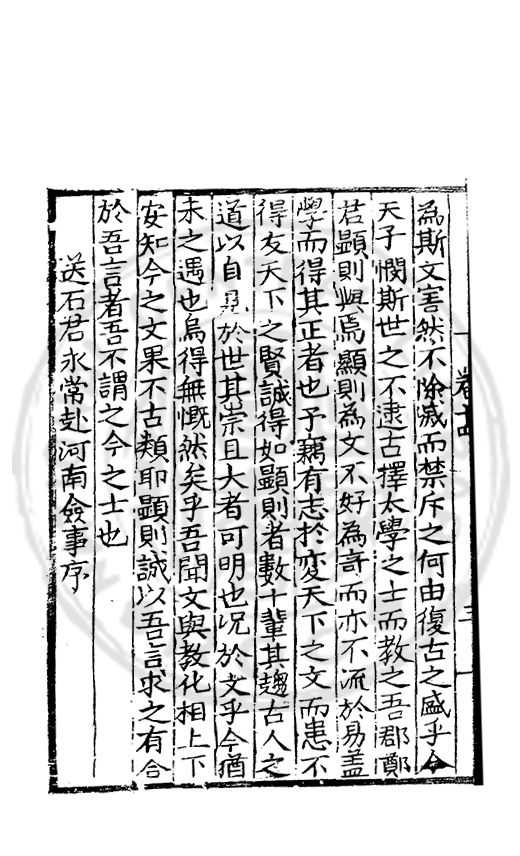 卷十四
三
為斯文害然不除滅而禁斥之何由復古之盛乎今
天子憫斯世之不逮古擇太學之士而教之吾郡鄭
君顯則與焉顯則為文不好為竒而亦不流於易盖
學而得其正者也予竊有志扵変天下之文而患不
得友天下之賢誠得如顯則者數十輩其趨古人之
道以自見於世其崇且大者可明也况於文乎今猶
未之遇也烏得無慨然矣乎吾聞文與教化相上下
安知今之文果不古類耶顯則誠以吾言求之有合
於吾言者吾不謂之今之士也
送石君永常赴河南僉事序